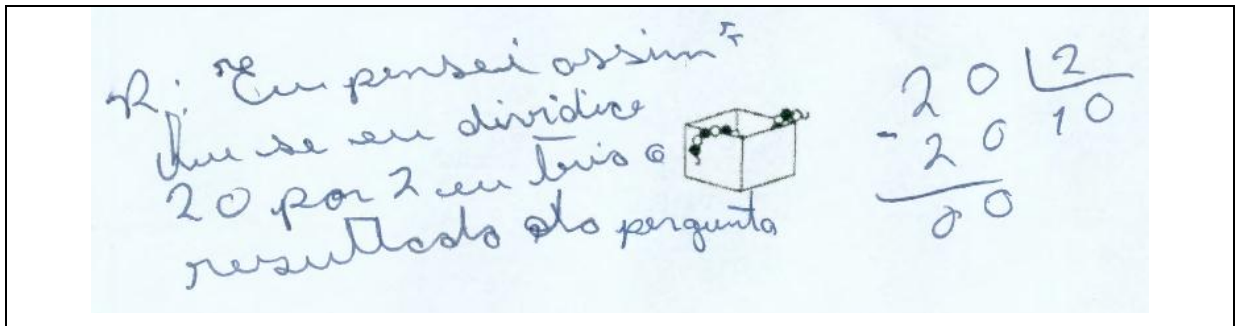 R: "Eu pensei assim"
Que se eu dividice
20 por 2 eu teris o
resulltado da pergunta
20 2
- 20 10
00